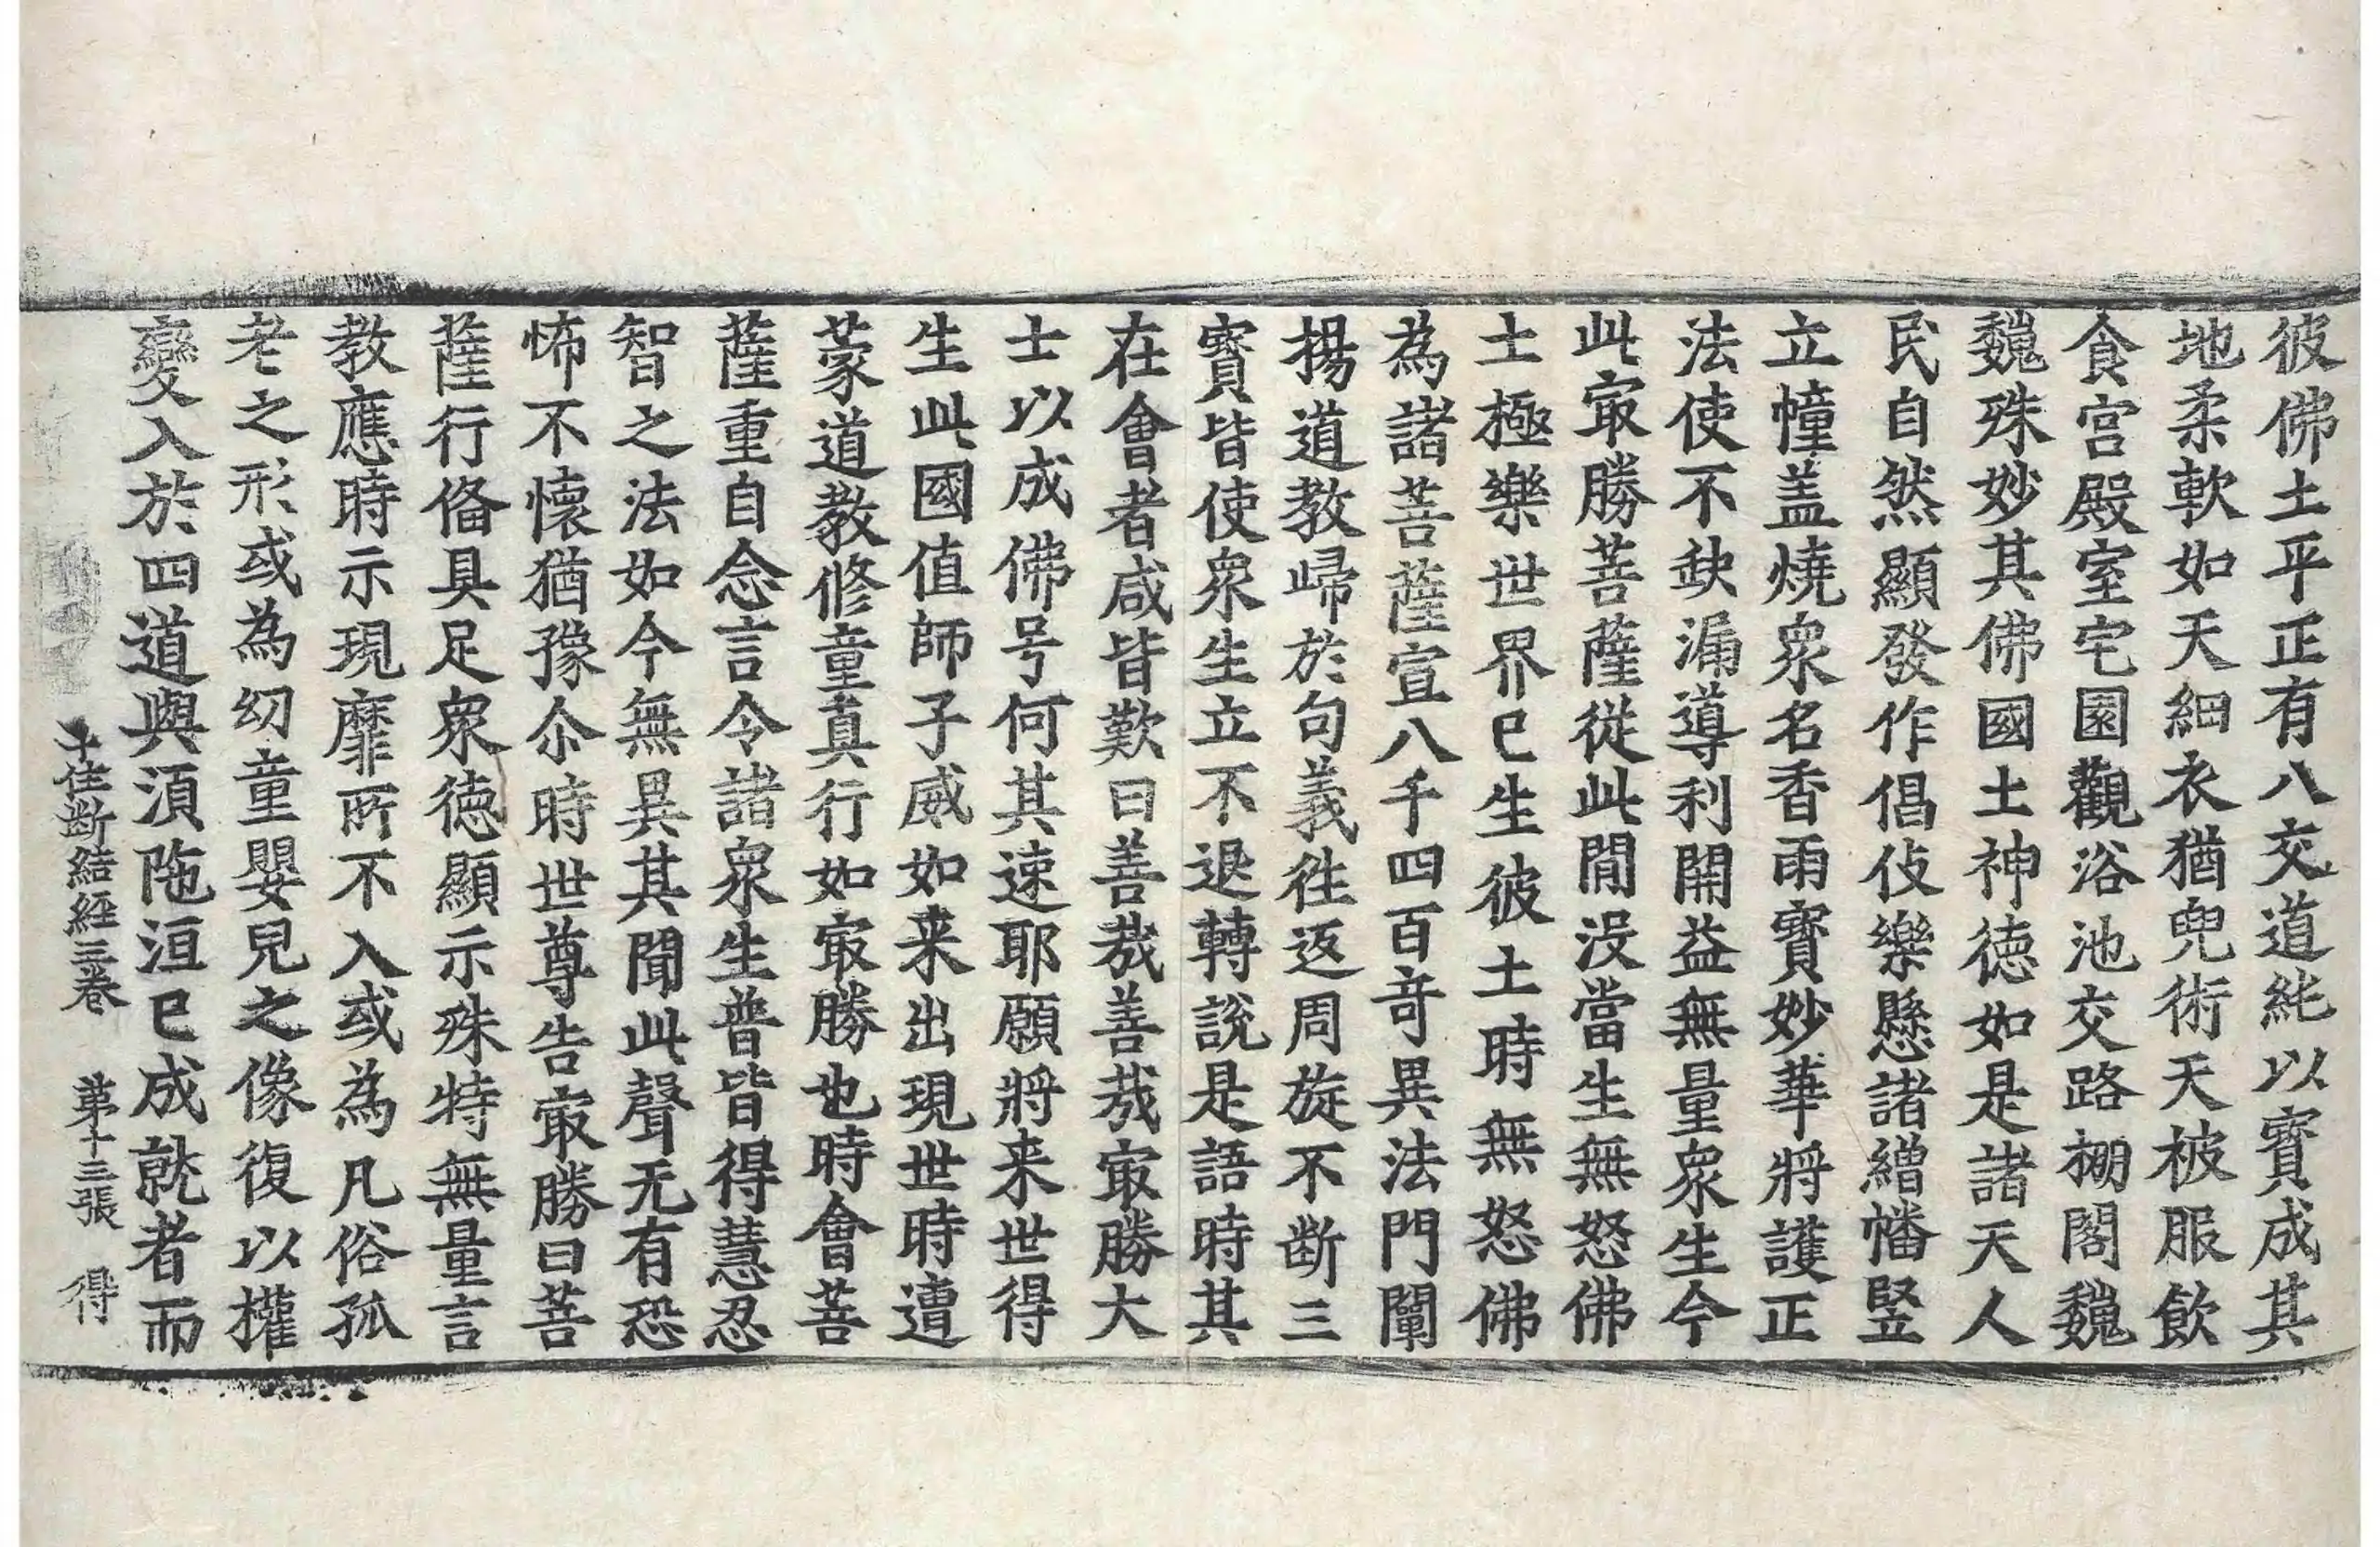 彼佛土平正有八交道純以寳成其
地柔軟如天綱衣猶兜術天被服飲
食宮殿室宅園觀浴池交路棚閣魏
魏殊妙其佛國土神德如是諸天人
民自然顯發作倡伎樂懸諸繒幡竪
立幢盖燒衆名香雨寳妙華將護正
法使不缺漏導利開益無量衆生今
此㝡勝菩薩從此閒没當生無怒佛
土極樂世界已生彼土時無怒佛
為諸菩薩宣八千四百竒異法門闡
揚道教歸於句義徃返周旋不斷三
寳皆使衆生立不退轉說是語時其
在會者咸皆歎曰善哉善哉㝡勝大
士以成佛号何其速耶願將来世得
生此國值師子威如来出現世時遭
蒙道教修童真行如㝡勝也時會菩
薩重自念言今諸衆生普皆得慧忍
智之法如今無異其聞此聲无有恐
怖不懷猶豫尒時世尊告㝡勝曰菩
薩行俻具足衆德顯示殊特無量言
教應時示現靡所不入或為凡俗孤
老之形或為幼童嬰兒之像復以權
變入於四道與湏陁洹已成就者而
十住断結経三卷　第十三張　得